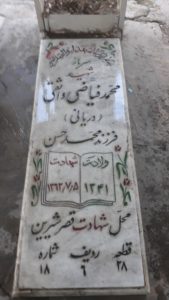 شهید
محمد فیاضی وثقی
(دریانی)
فرزند محمدحسن
ولادت شهادت
۱۳۴۱ ۱۳۶۲/۷/۵
محل شهادت قصرشیرین
قطعه ردیف شماره
۲۸ ۶ ۱۸